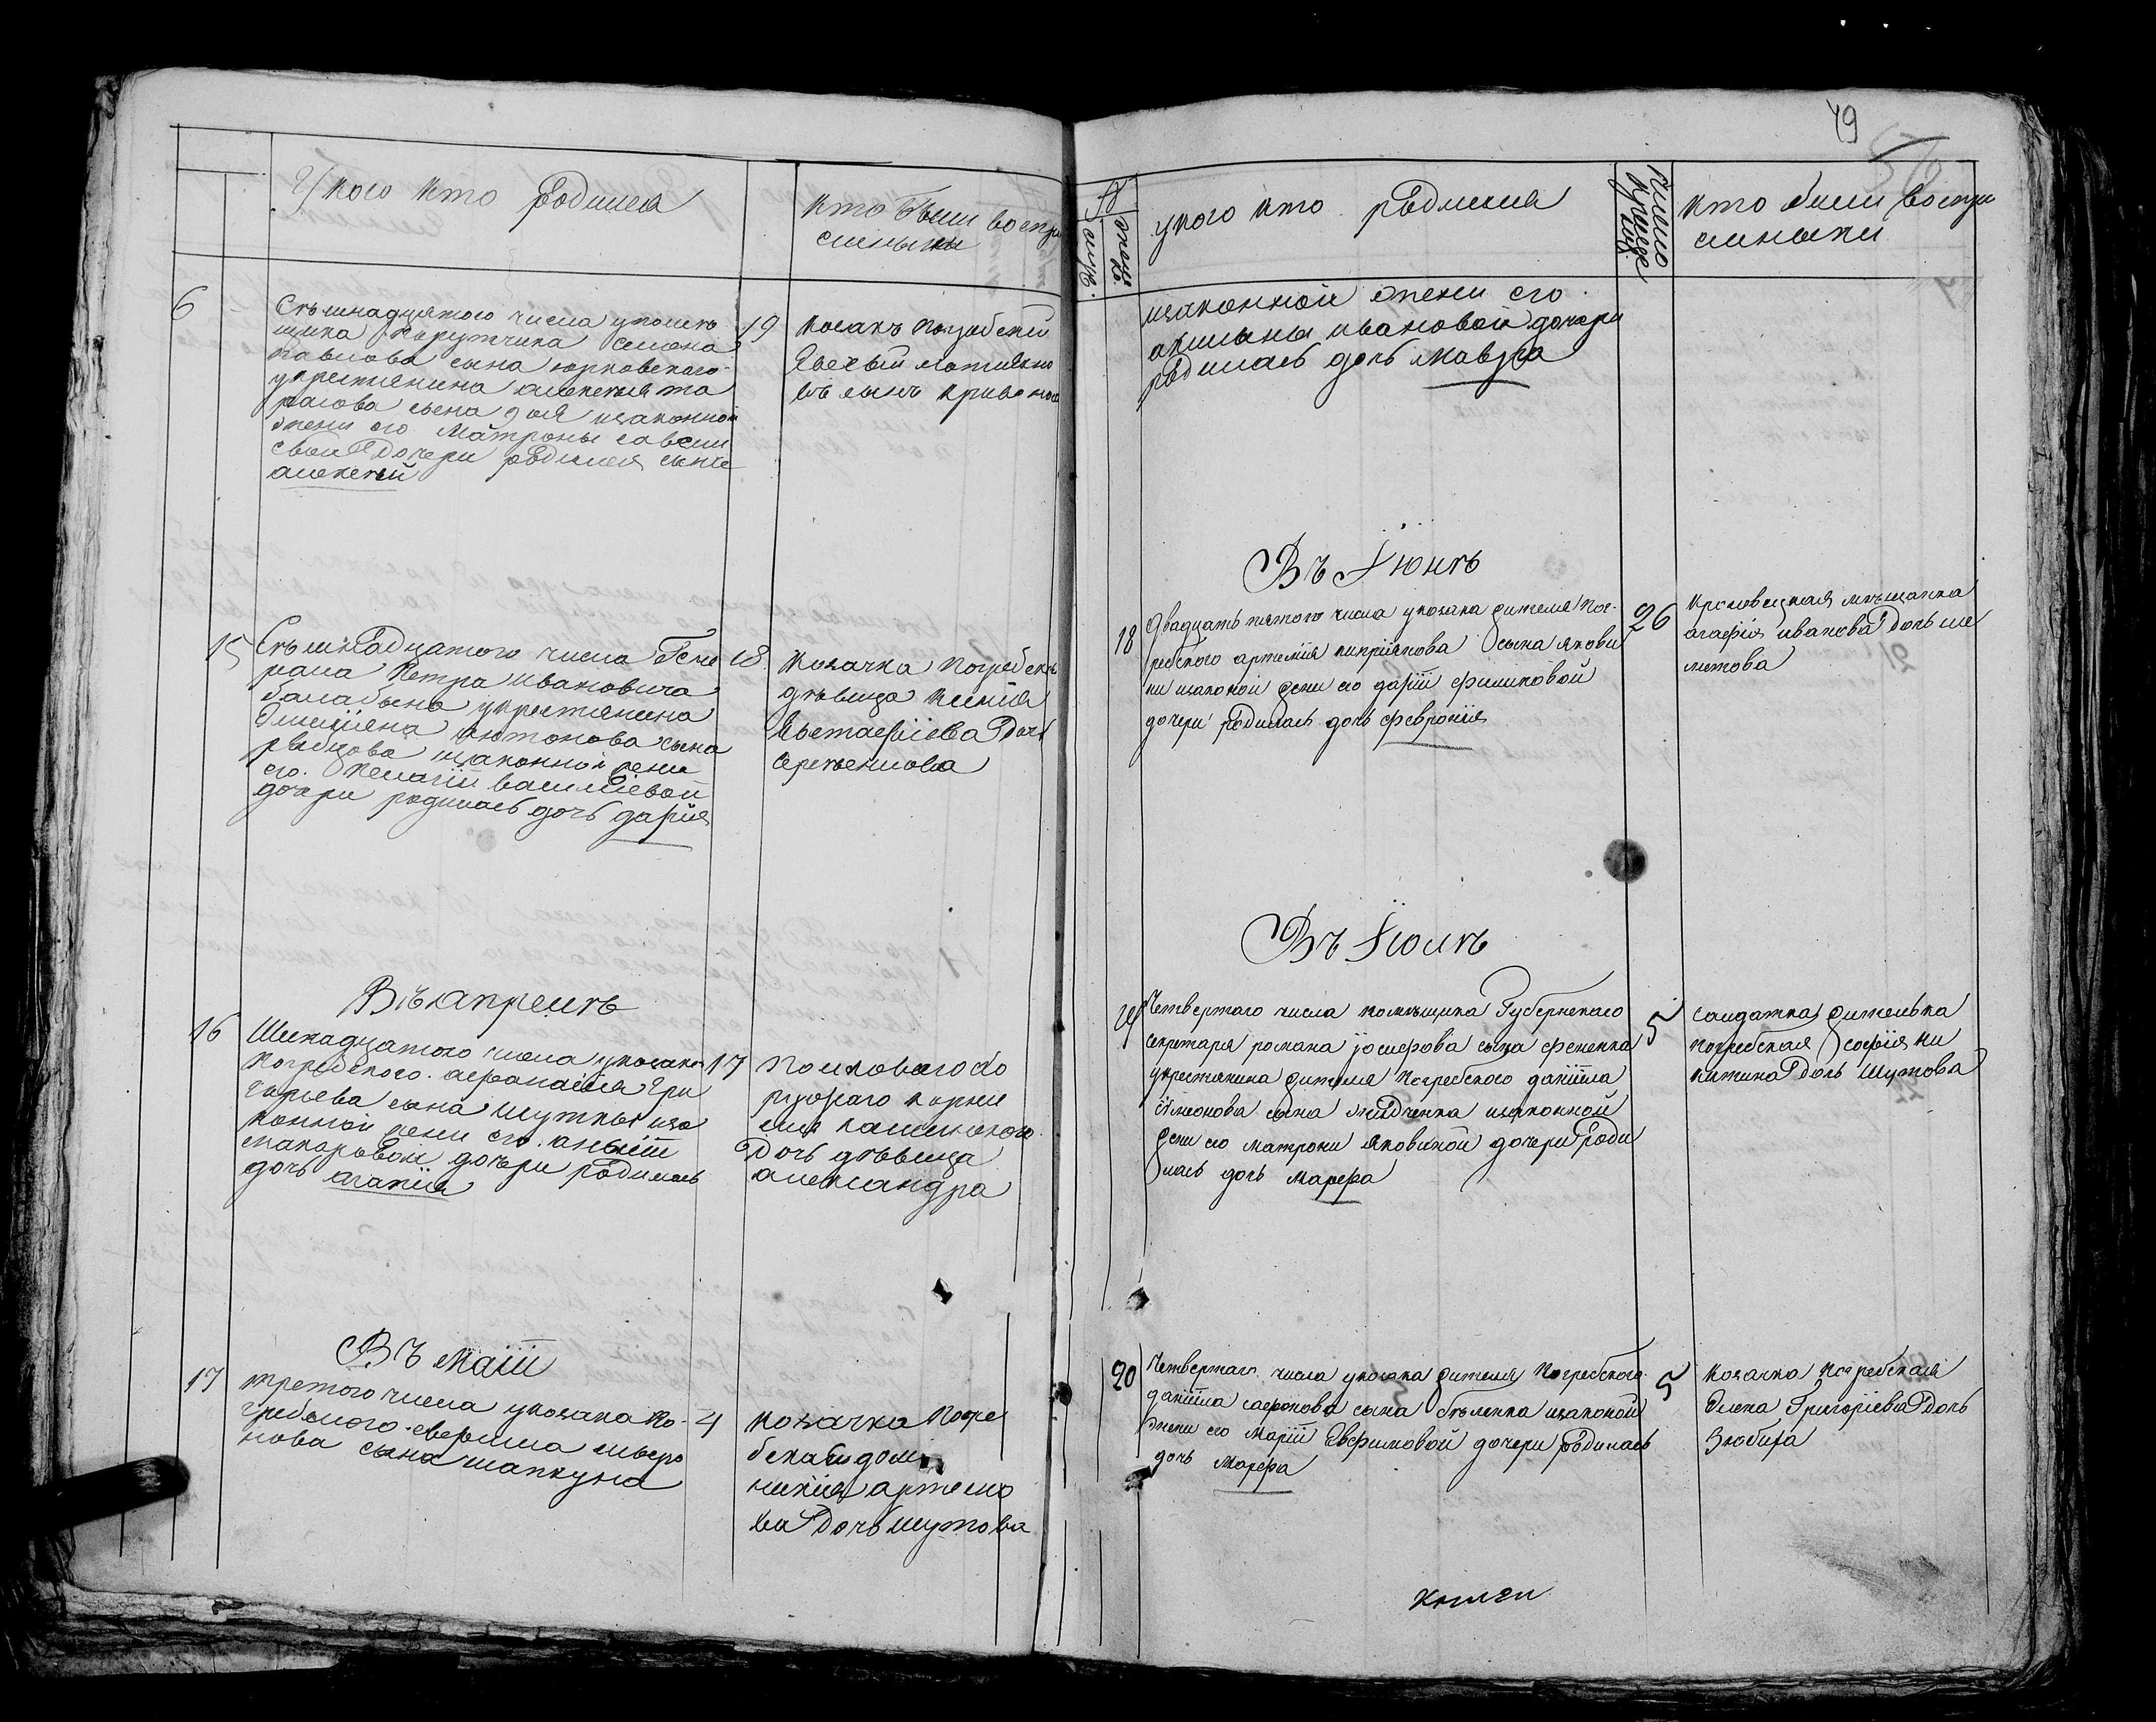 У кого кто родился
кто были воспри
емныки
6
Семнадцятого числа упомѣ
щика Порутчика семена
павлова сына юрковского
укрестянина алексея та
расова сына изаконной
жени его Матроны савели
евой дочери родился сынъ
алексей
19
козакъ погребскй
сынъ
15
Семнадцатого числа Гене
рала Петра ивановича
балабына укрестянина
Емелияна антонова сына
рыбцова изаконной жени
его Пелагіи василіевой
дочери родилась дочь дарія
18
козачка погребская
дѣвица
Евстафіева дочь
Въ апрелѣ
16
Шеснадцатого числа укозака
погребского афанасия Гри
горьева сына шутки иза
конной жени его
макаровой дочери родилась
дочь агапія
17
полкового хо
ружаго корни
лия калинского
дочь дѣвица
александра
Въ маіи
17
третого числа укозака по
гребского
нова сына шапкуна
4
козачка погре
бская
артемо
ва дочь шутова
49
№
мужс.
женс.
укого кто родился
число
креще
ній
кто были воспри
емныки
изаконной жени его
акилины ивановой дочери
родилась дочь мавра
Въ Іюнѣ
18
Двадцать пятого числа укозака жителя пог-
ребского артемія киприянова сына якови
ни изаконой жени его дарії филиповой
дочери родилась дочь феврония
26
кролевецкая мѣщанка
агафія иванова дочь ше
метова
Въ Іюлѣ
Четвертаго числа помѣщика Губернскаго
Секретаря романа іосифова сына фененка
укрестянина жителя погребского данііла
сімеонова сына изаконной
жени его матрони яковиной дочери роди
лась дочь марфа
5
салдатка жителька
погребская софія ни
китина дочь Шутова
20
Четвертаго числа укозака жителя погребского
данііла сафонова сына бѣленка изаконой
жени его марії Евфимовой дочери родилась
дочь Марфа
5
козачка погребская
Елена Григоріева дочь
Зюбина